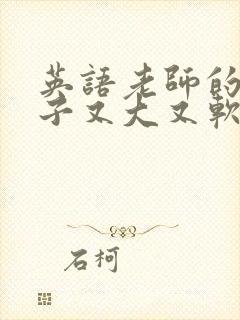 英語老師的
子又大又軟
石柯